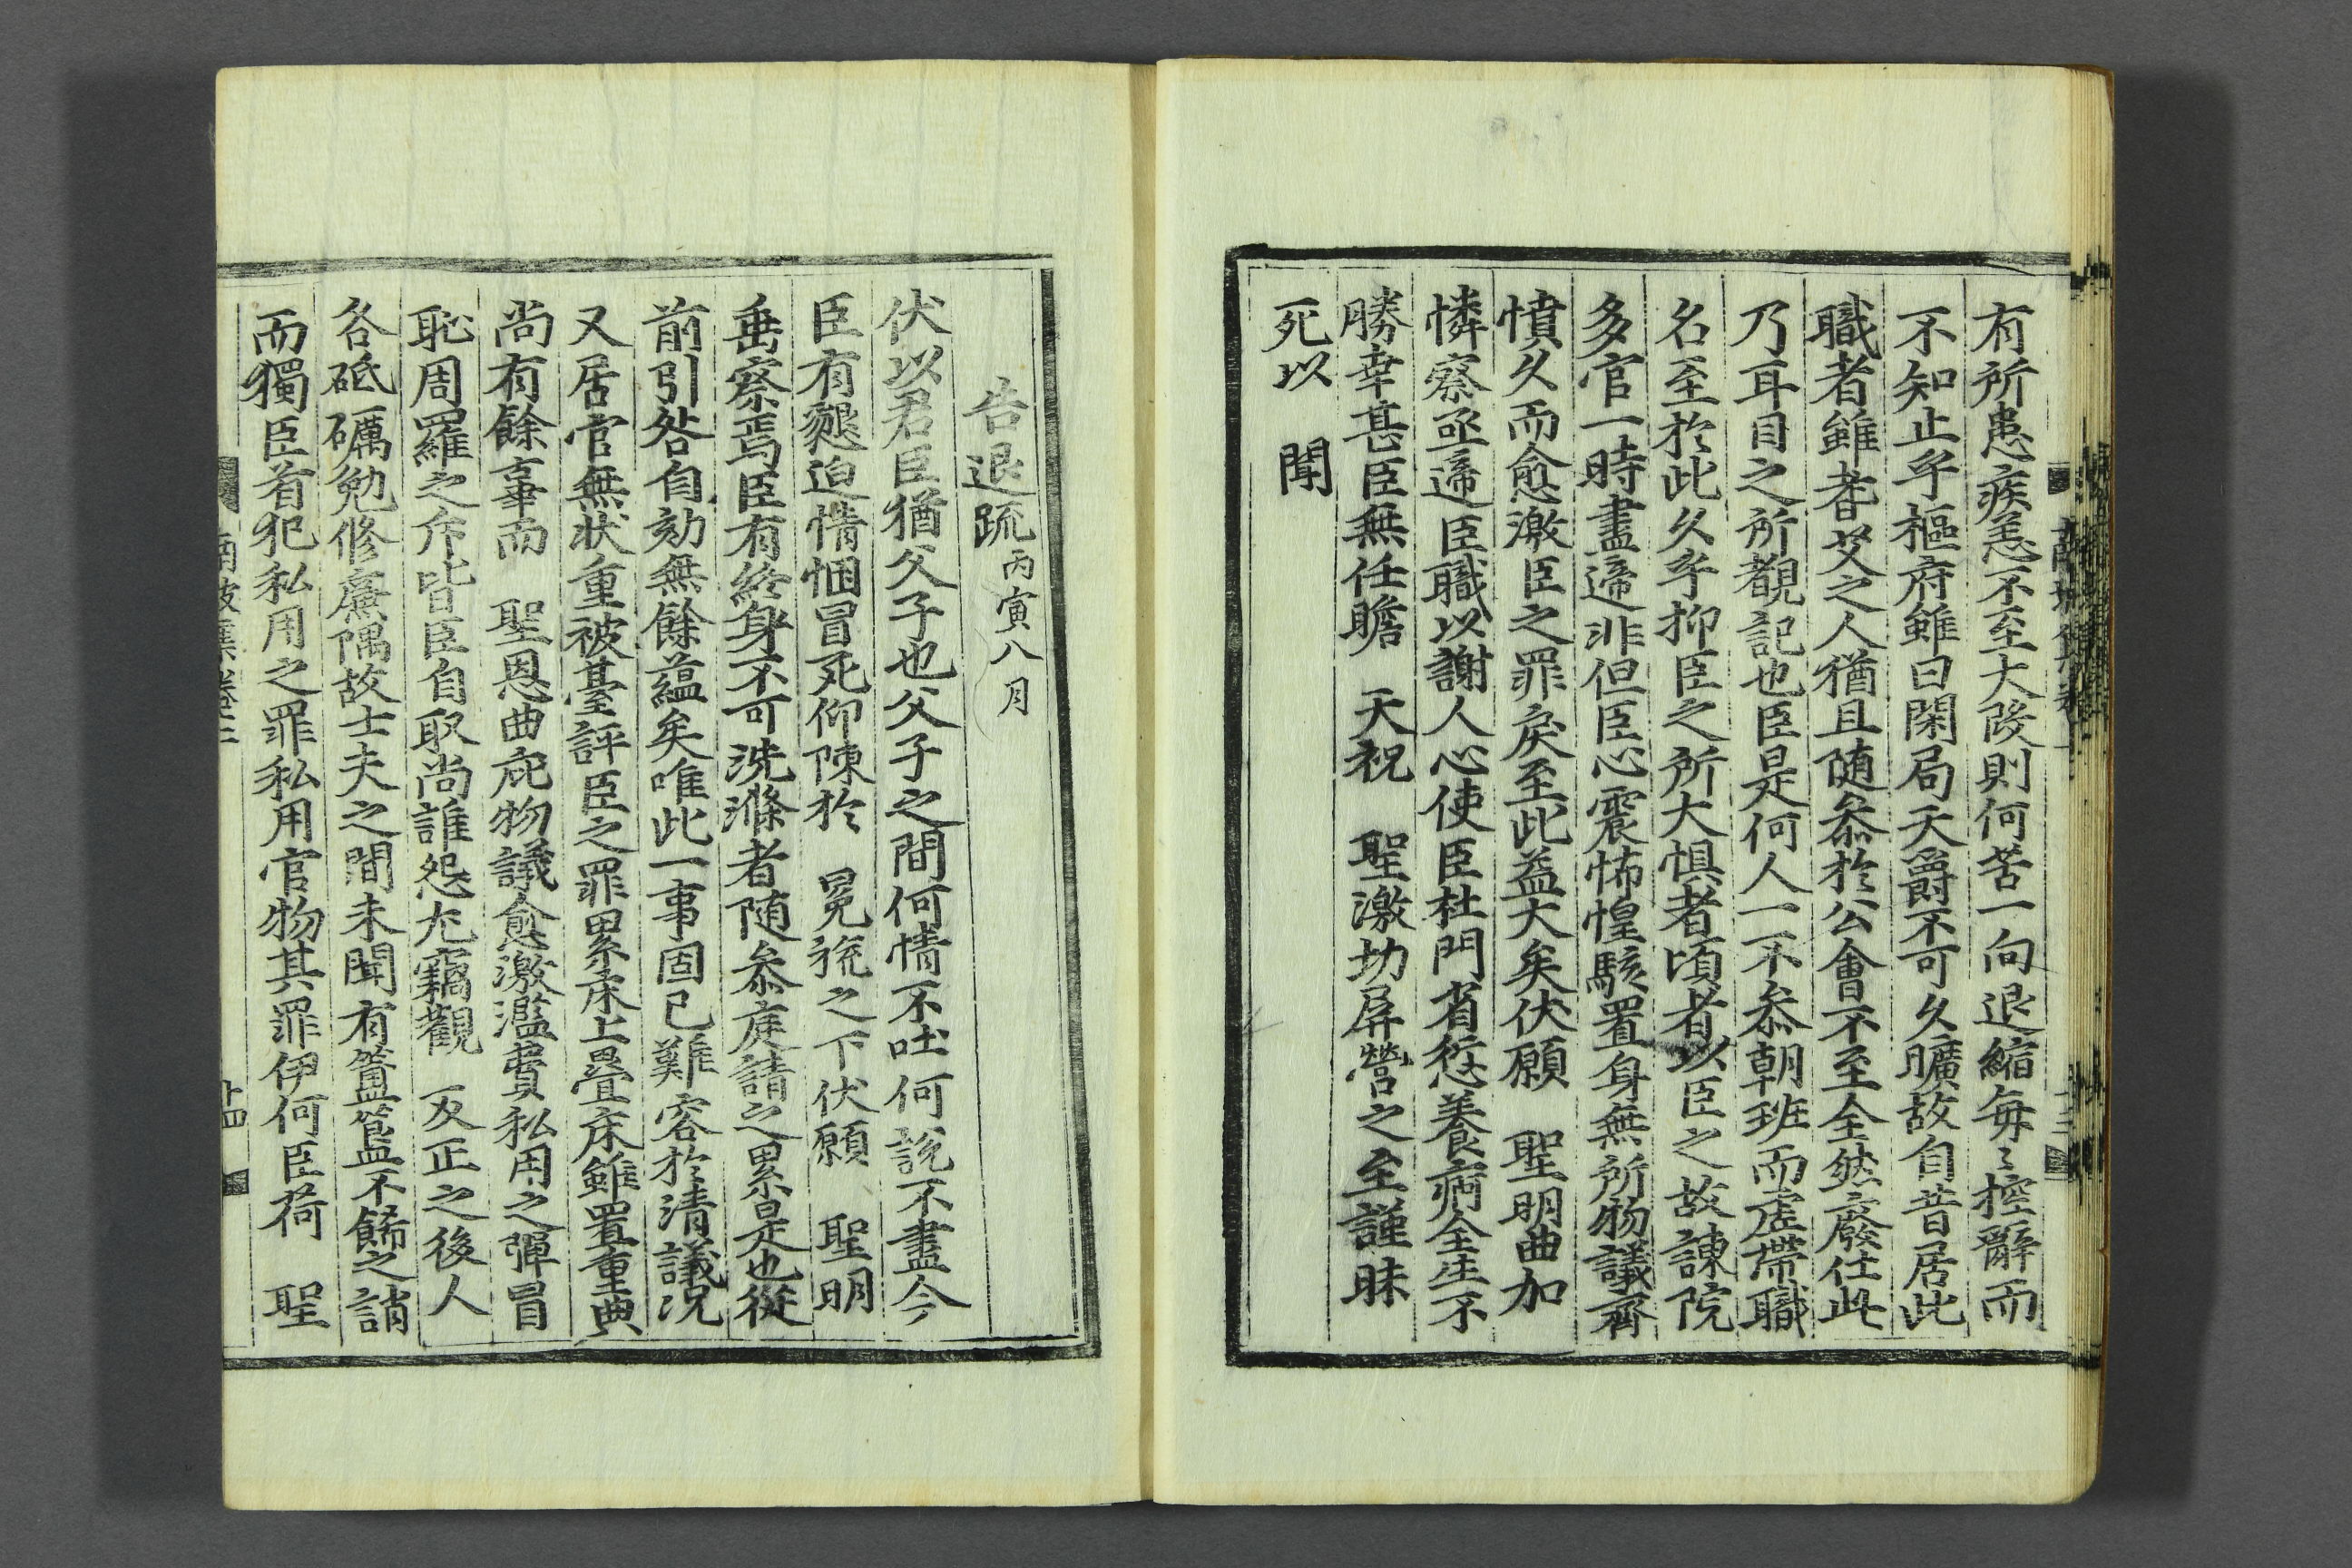 有所患疾恙不至大段則何苦一向退縮每〻控辭而
不知止乎樞府雖曰閑局天爵不可久曠故自昔居此
職者雖耆艾之人猶且随叅於公會不至全然廢仕此
乃耳目之所覩記也臣是何人一不叅朝班而虛帶職
名至於此久乎抑臣之所大惧者頃者以臣之故諫院
多官一時盡遞非但臣心震怖惶駭置身無所物議齊
憤久而愈激臣之罪戾至此益大矣伏願 聖明曲加
憐察亟遞臣職以謝人心使臣杜門省愆養病全生不
勝幸甚臣無任瞻 天祝 聖激切屛營之至謹昧
死以 聞
告退疏 丙寅八月
伏以君臣猶父子也父子之間何情不吐何說不盡今
臣有懇迫情悃冒死仰陳於 冕旒之下伏願 聖明
垂察焉臣有終身不可洗滌者随叅庭請之累是也從
前引咎自劾無餘蘊矣唯此一事固已難容於清議況
又居官無狀重被臺評臣之罪累床上疊床雖置重典
尚有餘辜而 聖恩曲庇物議愈激濫費私用之彈冒
恥周羅之斥皆臣自取尚誰怨尤竊觀 反正之後人
各砥礪勉修廉隅故士夫之間未聞有簠簋不餙之誚
而獨臣首犯私用之罪私用官物其罪伊何臣荷 聖
十四